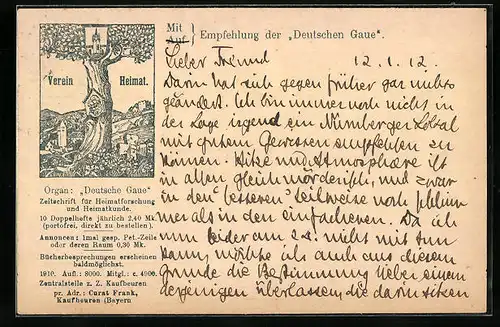 Mit
Auf } Empfehlung der „Deutschen Gaue".
Verein Heimat.
Organ: „Deutsche Gaue"
Zeitschrift für Heimatforschung
und Heimatkunde.
10 Doppelhefte jährlich 2.40 Mk.
(portofrei, direkt zu bestellen).
Annoncen: 1mal gesp. Pet.-Zeile
oder deren Raum 0,30 Mk.
Bücherbesprechungen erscheinen
baldmöglichst.
1910. Aufl.: 8000. Mitgl.: c. 4900.
Zentralstelle z. Z. Kaufbeuren
pr. Adr.: Curat Frank,
Kaufbeuren (Bayern
Lieber Freund 12.1.12.
Darin hat sich gegen früher gar nichts
geändert. Ich bin immer noch nicht in
der Lage irgend ein Nürnberger Lokal
mit gutem Gewissen empfehlen zu
können. Hitze und Atmosphäre ist
in allen gleich mörderisch, und zwar
in den "besseren" teilweise noch schlim
mer als in den einfacheren. Da ich
nun leider am 2. nicht mit tun
kann, möchte ich auch aus diesem
Grunde die Bestimmung lieber einem
derjenigen überlassen, die darin sitzen